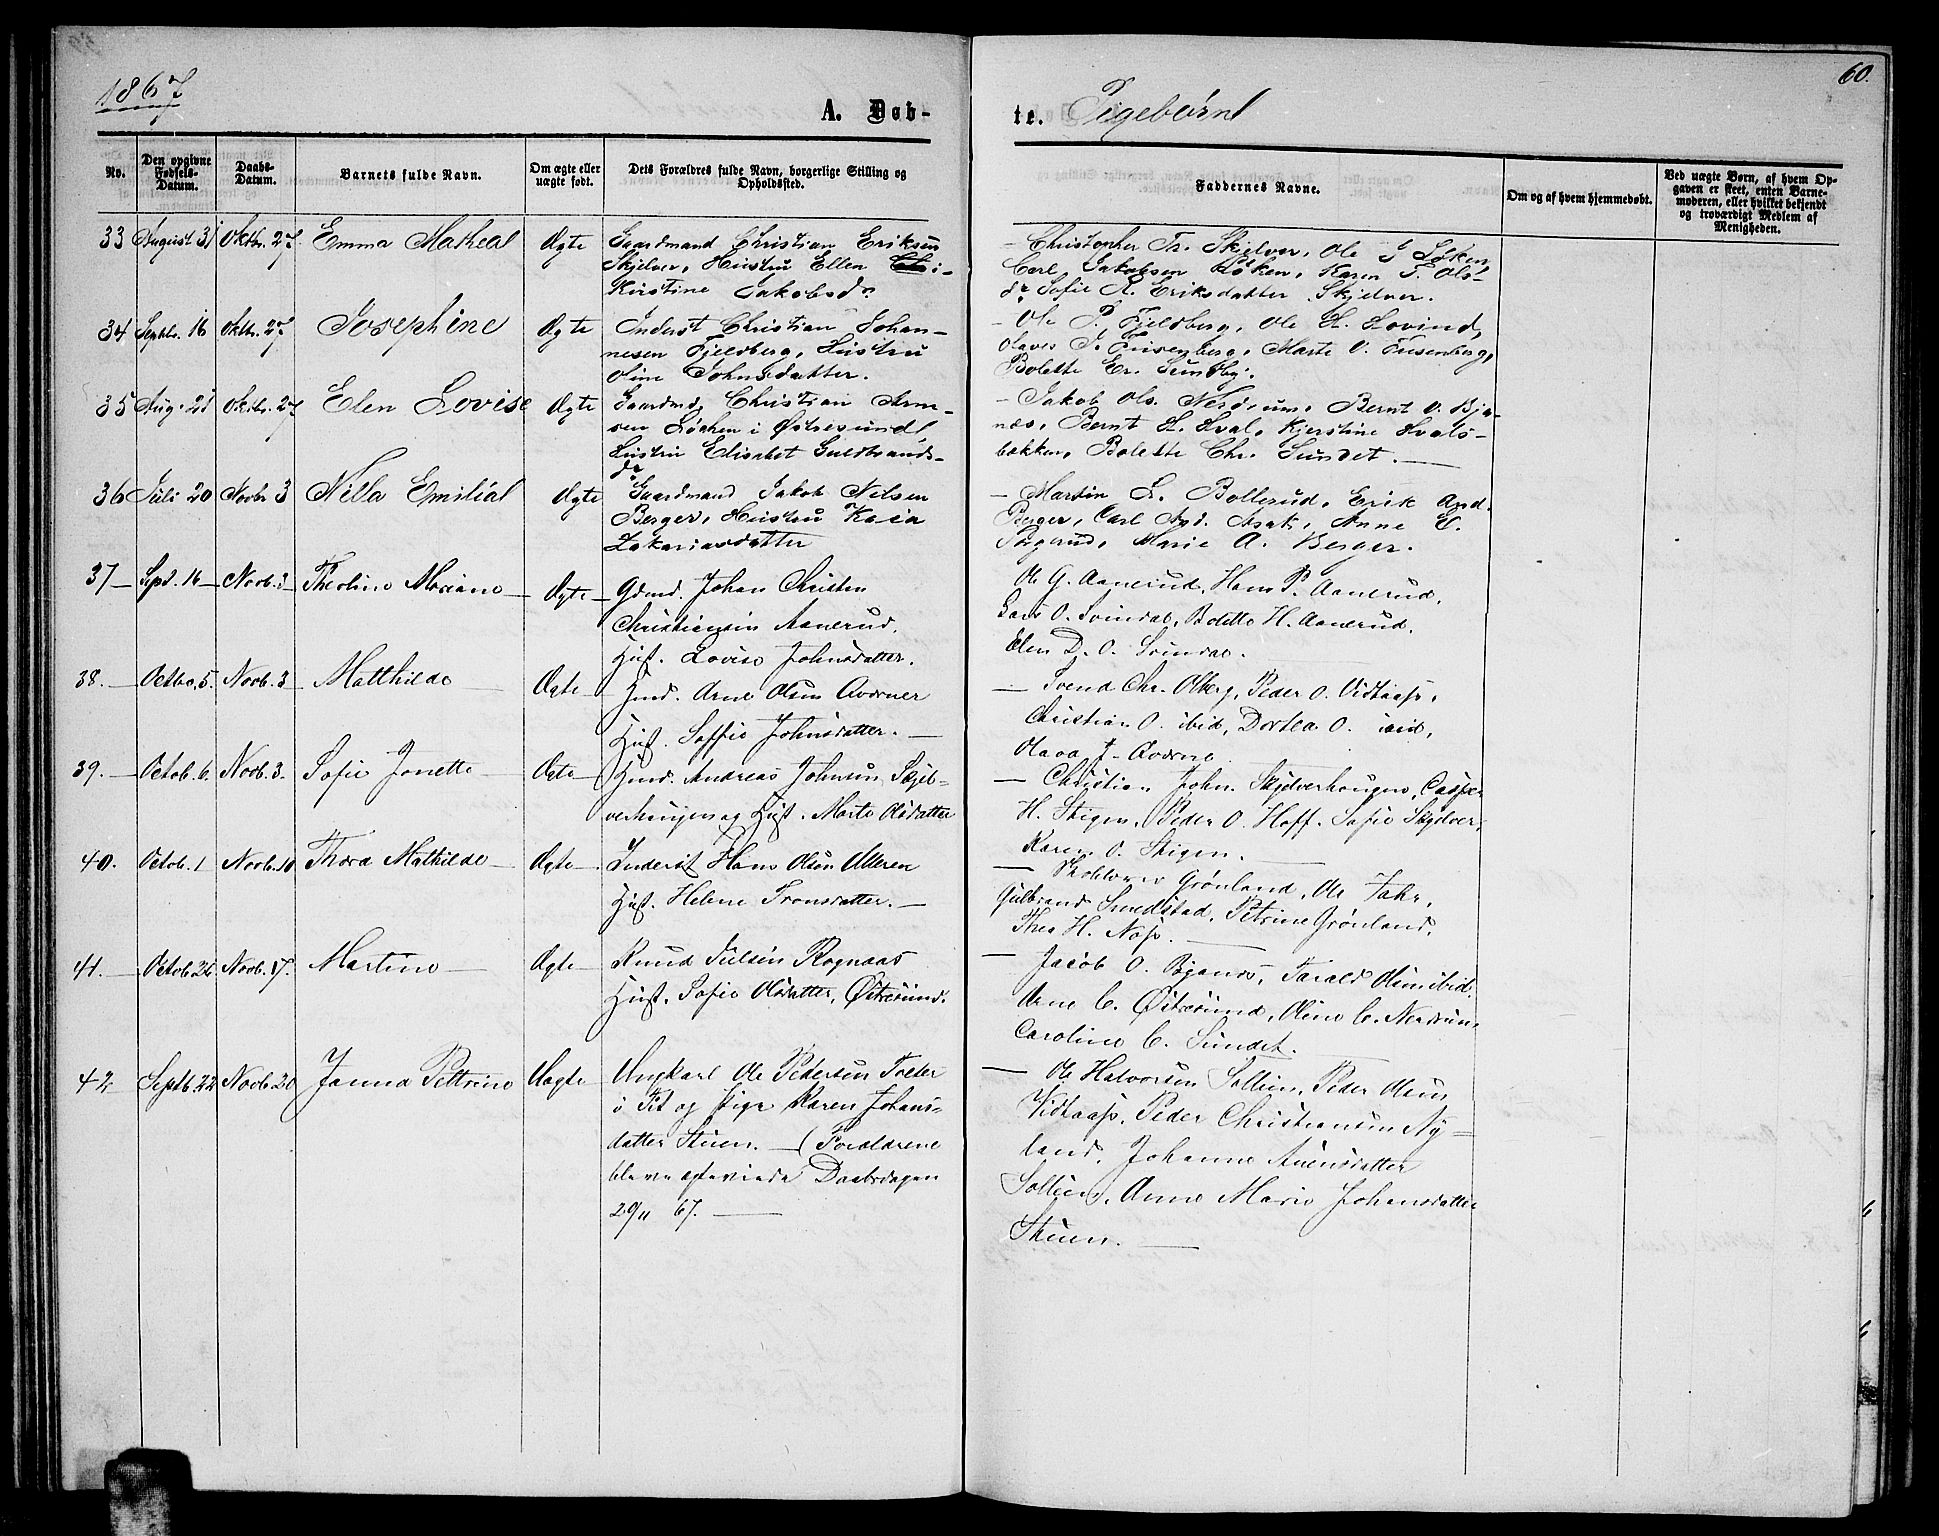 1867
60.
A. Døb-
te. Pigebørn
No.
Den opgivne Fødsels-Datum.
Daabs-Datum.
Barnets fulde Navn.
Om ægte eller uægte født.
Dets Forældres fulde Navn, borgerlige Stilling og Opholdssted.
Faddernes Navne.
Om og af hvem hjemmedøbt.
Ved uægte Børn, af hvem Opgaven er skeet, enten Barnemoderen, eller hvilket bekjendt og troværdigt Medlem af Menigheden.
33 August 31 Oktbr. 27 Emma Mathea Ægte Gaardmand Christian Eriksen
Skjelver, Hustru Ellen
Kirstine Jakobsdr
- Christopher Th. Skjelver, Ole G Løken
Carl Jakobsen Løken, Karen T. Ols-
dr Sofie A. Eriksdatter Skjelver.
34 Septbr. 16 Oktbr. 27 Josephine Ægte Inderst Christian Johan-
nesen Fjeldberg, Hustru
Oline Johnsdatter.
- Ole P. Fjeldberg, Ole H. Hovind,
Olaves J. Frisenberg, Marte O. Frisenberg,
Bolette Er. Sundby.
35 Aug. 21 Oktbr. 27 Elen Lovise Ægte Gaardmd, Christian Arne-
sen Løken i Østresund
Hustru Elisabet Guldbrands-
dr
- Jakob Ols. Nerdrum, Bernt O. Bjø-
næs, Bernt H. Hval, Kjerstine Hvals-
bakken, Bolette Chr. Sundet.
36 Juli 20 Novbr 3 Nilla Emilia Ægte Gaardmand Jakob Nilsen
Berger, Hustru Kaia
Zakariasdatter
- Martin L. Bollerud, Erik And.
Berger, Carl And. Asak, Anne E.
Marie A. Berger.
37 Sept. 16 Novb. 3 Theoline Mariane Ægte Gdmd. Johan Christen
Christiansen Aanerud,
Hust. Lovise Johnsdatter.
Ole G. Aanerud, Hans P. Aanerud,
Lars O. Svindal, Bolette H. Aanerud,
Elen D. O. Svindal.
38. Octbo. 5. Novb. 3 Matthilde Ægte Hmd. Arne Olsen Ovorner
Hust. Soffie Johnsdatter.
- Svend Chr. Olberg, Peder O. Vidtaasp,
Christian O. ibid, Dortea O. ibid,
Olava J.
39. Octob. 6. Novb. 3. Sofie Jonette Ægte Hmd. Andreas Johnsen Skjel-
verhaugen og Hust. Marte Olsdatter
- Christian John. Skjelverhougen, Casper
H. Stigen, Peder O. Hoff. Sofie Skjelver,
Karen O. Stigen.
40. Octob. 1 Novb. 10 Thora Mathilde Ægte Inderst Hans Olsen Ulleren
Hust. Helene Tronsdatter.
- Grønland, Ole Fahr,
Gulbrand Smedstad, Petrine Grønland,
Thea H. Næss.
41. Octob. 26 Novb. 17. Martine Ægte Knud Juelsen Rognaas
Hust. Sofie Olsdatter, Østresund.
- Jacob O. Bjønæs, Tarald Olsen ibid.
Arne C. Østresund, Oline C. Nerdrum,
Caroline C. Sundet.
42 Septb. 22 Novb. 20 Janna Pettrine Uægte Ungkarl Ole Pedersen Toeter
i Fet og Pige Karen Johans-
datter Stuen. - (Forældrene
bleve ægteviede Daabsdagen
20/11 67.
- Ole Halvorsen Sollien, Peder Olsen
Vidtaasp, Peder Christiansen Ny-
land. Johanne Auensdatter
Sollien, Anne Marie Johansdatter
Stuen.